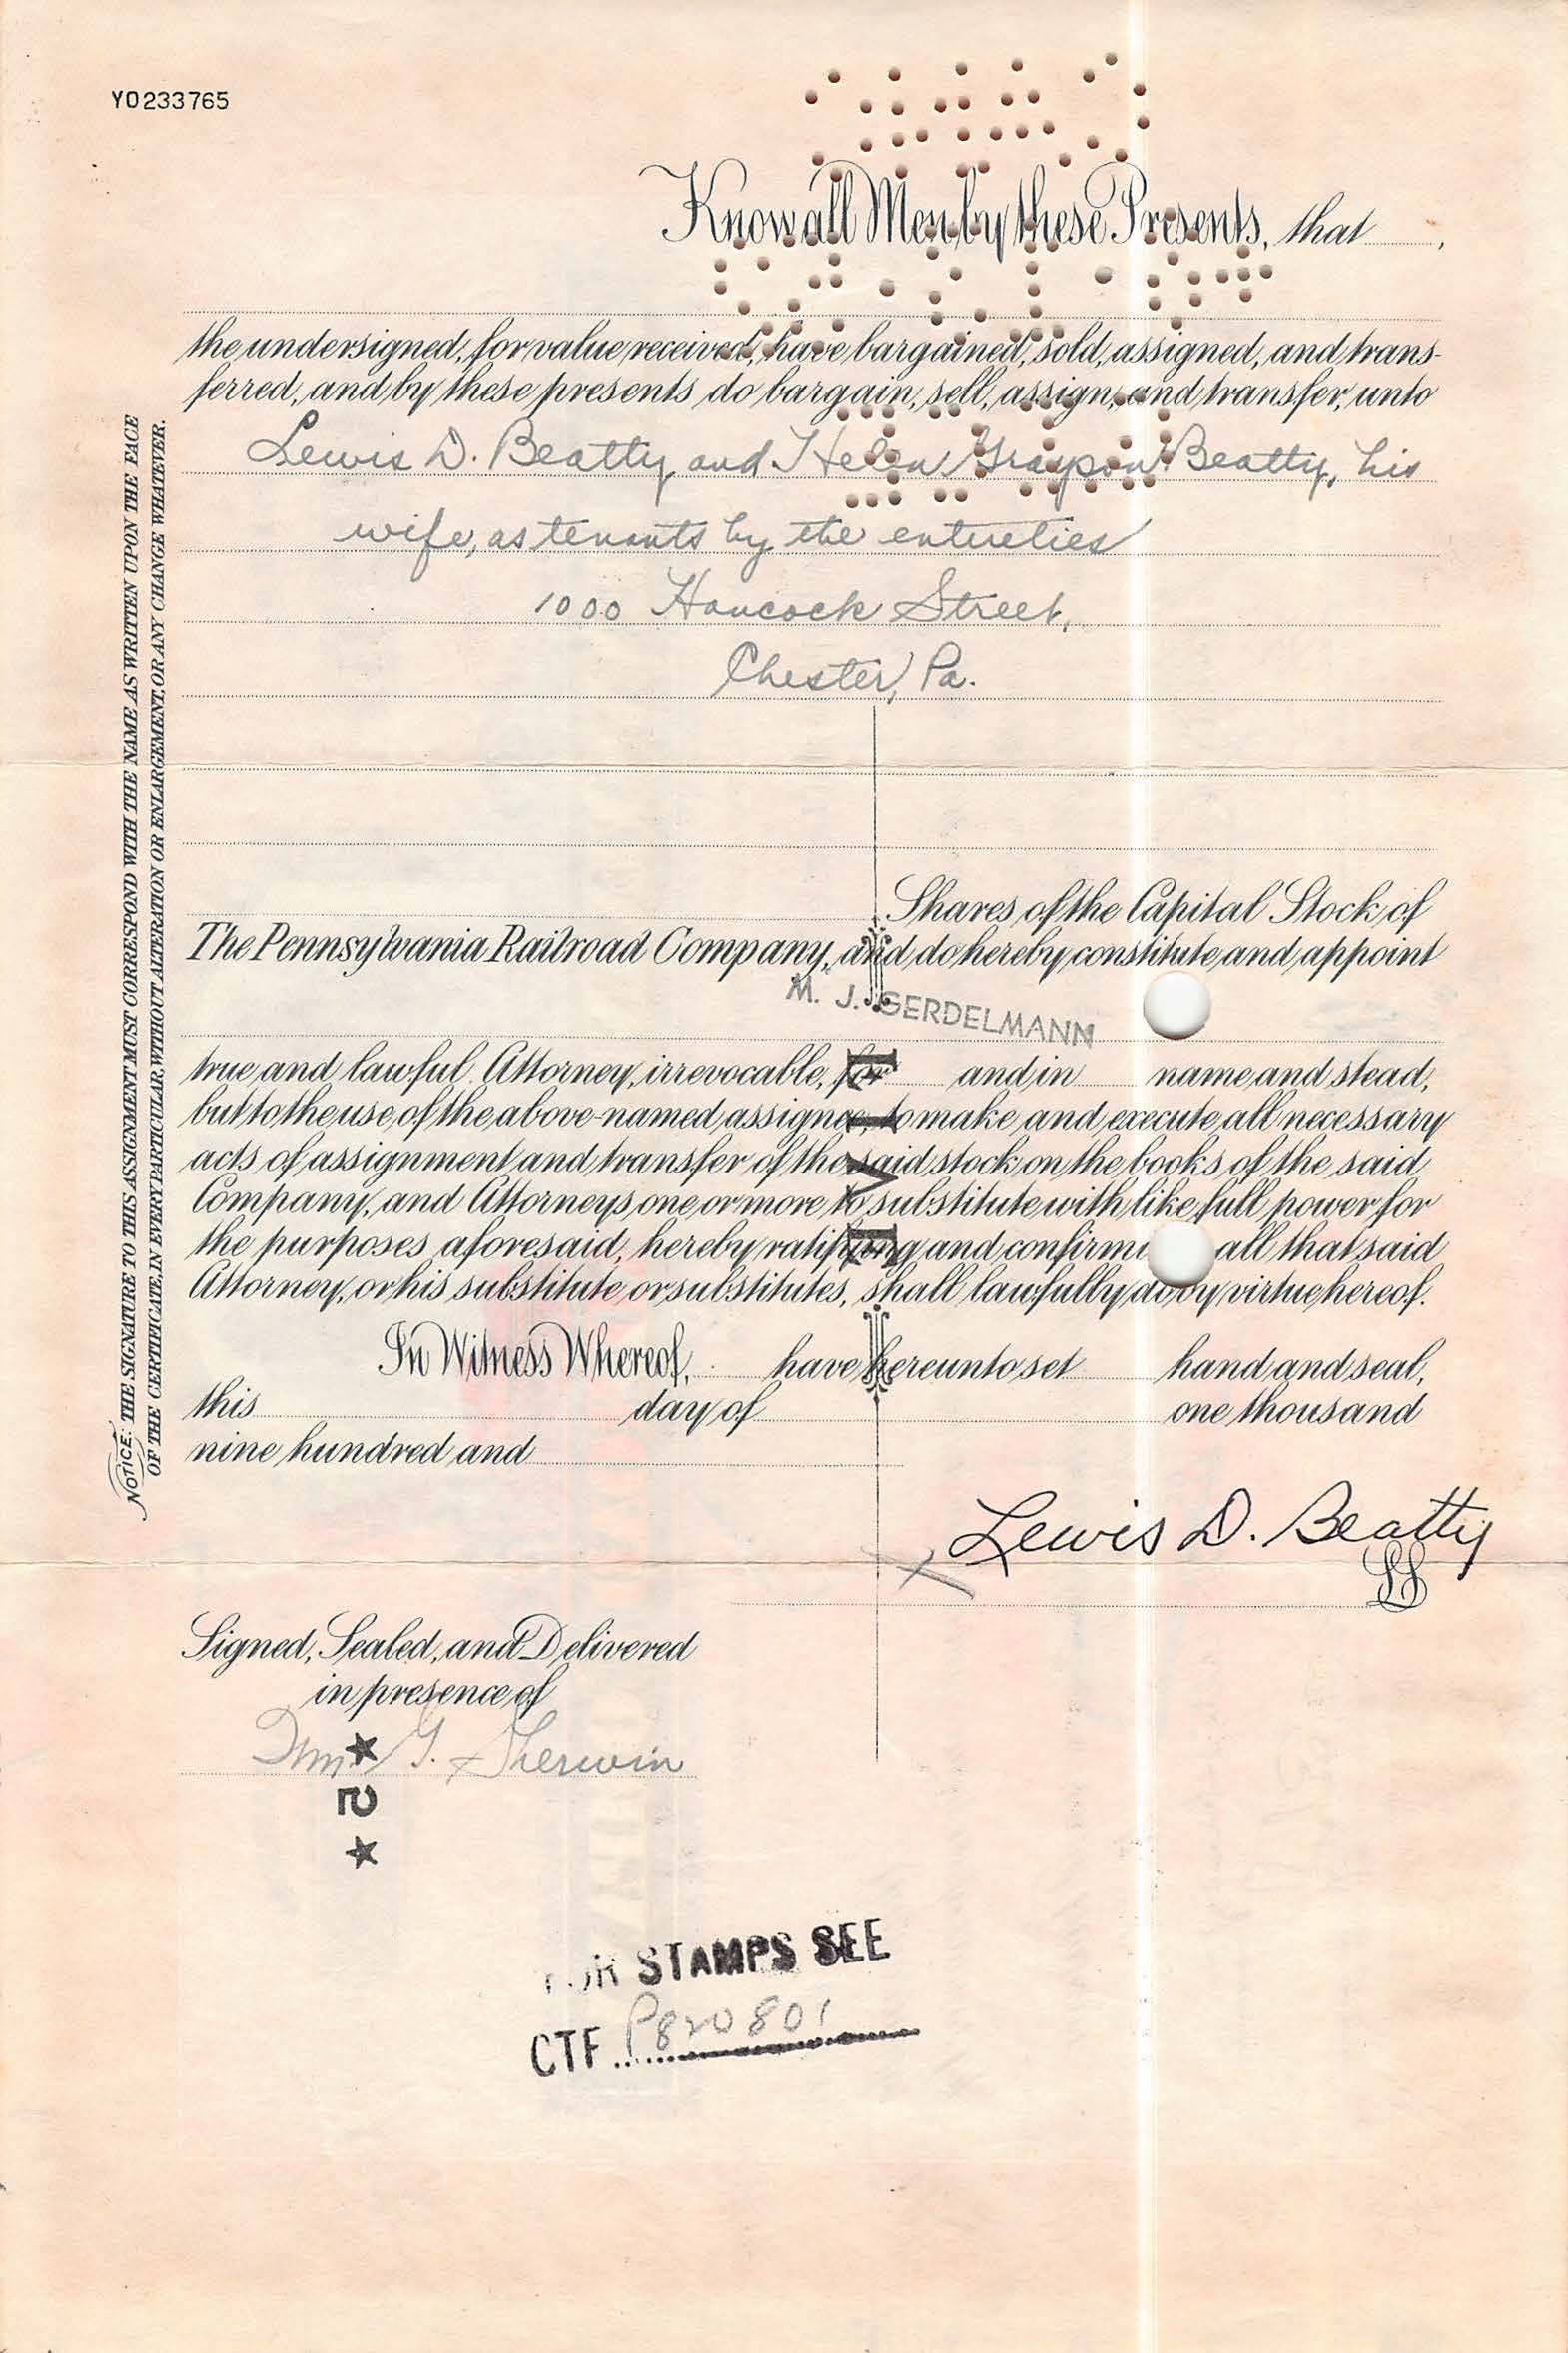 YO233765
Know all Men by these Presents, that
the undersigned, for value received, have bargained, sold, assigned, and trans-
ferred, and by these presents do bargain, sell, assign, and transfer, unto
Lewis D. Beatty and Helen Grayson Beatty, his
wife, as tenants by the entireties
1000 Hancock Street,
Chester, Pa.
Shares of the Capital Stock of
The Pennsylvania Railroad Company, and do hereby constitute and appoint
M. J. GERDELMANN
true and lawful Attorney, irrevocable, for and in name and stead,
but to the use of the above-named assignee, to make and execute all necessary
acts of assignment and transfer of the said stock on the books of the said
Company, and Attorneys one or more to substitute with like full power for
the purposes aforesaid, hereby ratifying and confirmi all that said
Attorney, or his substitute or substitutes, shall lawfully do by virtue hereof.
In Witness Whereof, have hereunto set hand and seal,
this day of one thousand
nine hundred and
Lewis D. Beatty
LS
Signed, Sealed, and Delivered
in presence of
Wm. G. Sherwin
★ 5 ★
FOR STAMPS SEE
CTF P820801
NOTICE: THE SIGNATURE TO THIS ASSIGNMENT MUST CORRESPOND WITH THE NAME AS WRITTEN UPON THE FACE
OF THE CERTIFICATE, IN EVERY PARTICULAR, WITHOUT ALTERATION OR ENLARGEMENT, OR ANY CHANGE WHATEVER.